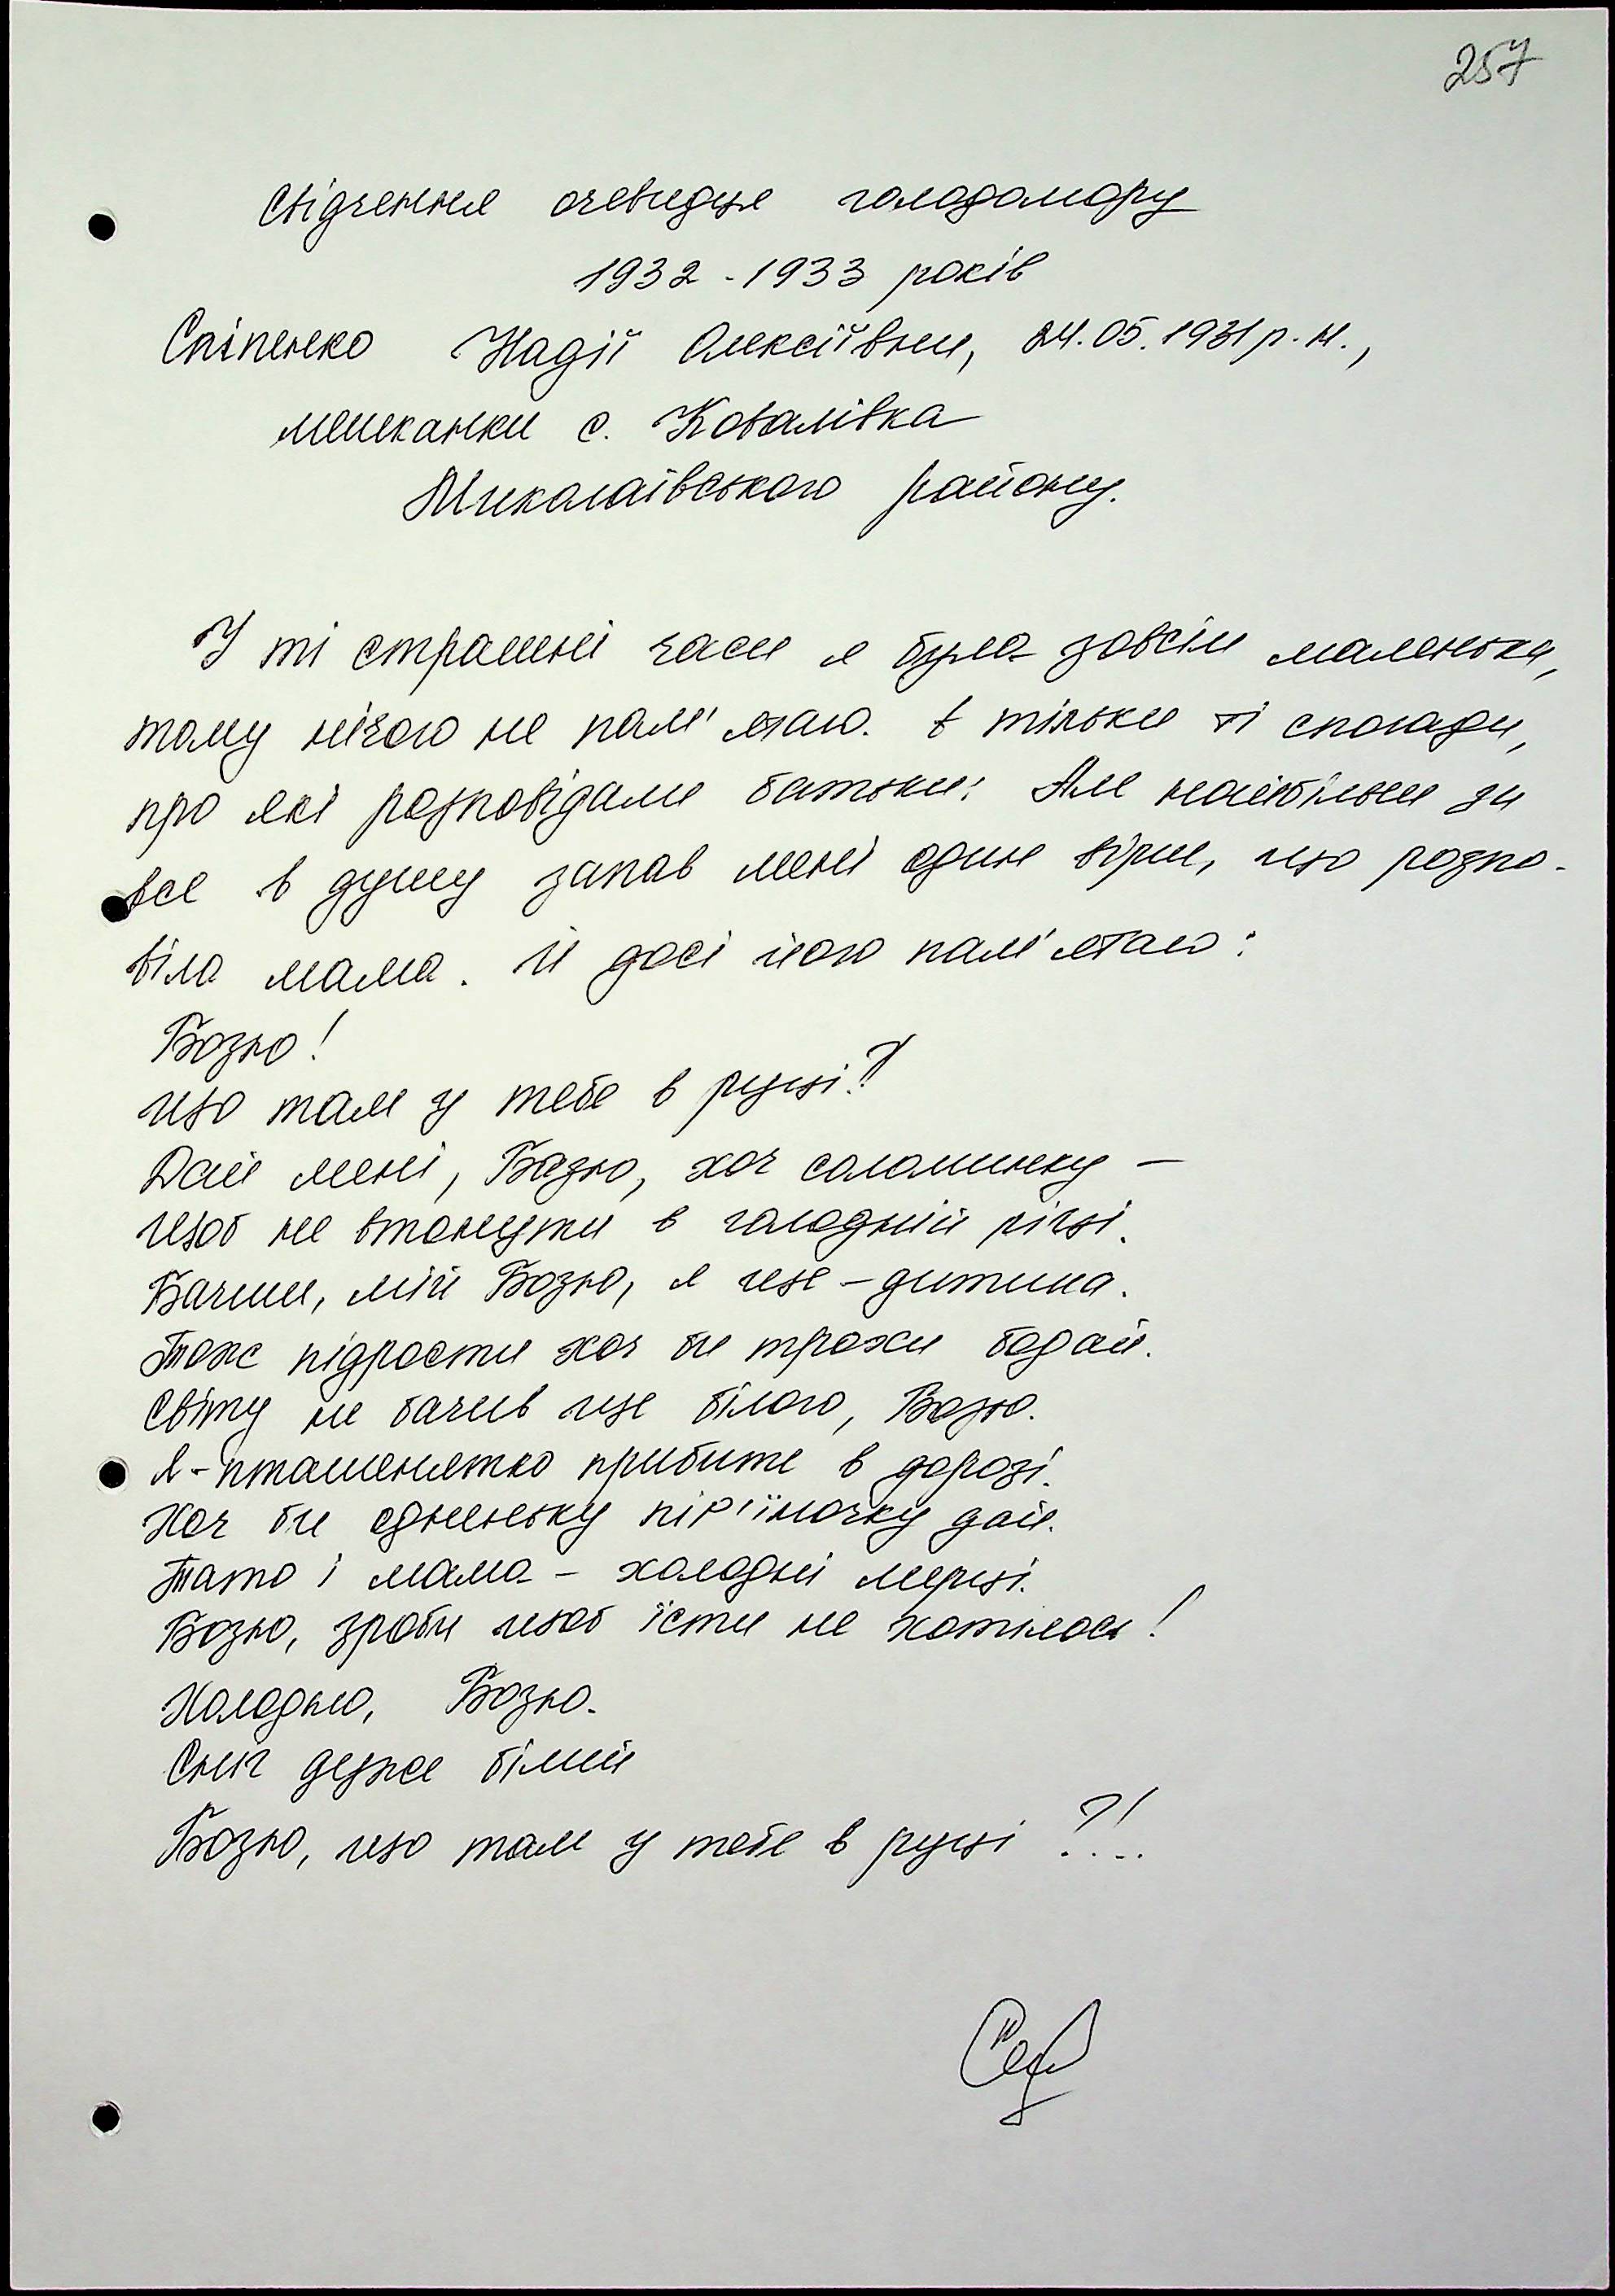 257
Свідчення очевидця голодомору
1932-1933 років
Сліпенко Надії Олексіївни, 24.05.1931 р.н.,
мешканки с. Ковалівка
Миколаївського району.
У ті страшні часи я була зовсім маленька,
тому нічого не пам'ятаю. Є тільки ті спогади,
про які розповідали батьки. Але найбільш за
все в душу запав мені один вірш, що розпо-
віла мама. Й досі його пам'ятаю:
Бозю!
що там у тебе в руці?!
Дай мені, Бозю, хоч соломинку –
щоб не втонути в голодній ріці.
Бачиш, мій Бозю, я ще – дитина.
Тож підрости хоч би трохи бодай.
Світу не бачив ще білого, Бозю.
Я - пташенятко прибите в дорозі.
Хоч би одненьку пір'їночку дай.
Тато і мама – холодні мерці.
Бозю, зроби щоб їсти не хотілось!
Холодно, Бозю.
Сніг дуже білий
Бозю, що там у тебе в руці ?!...